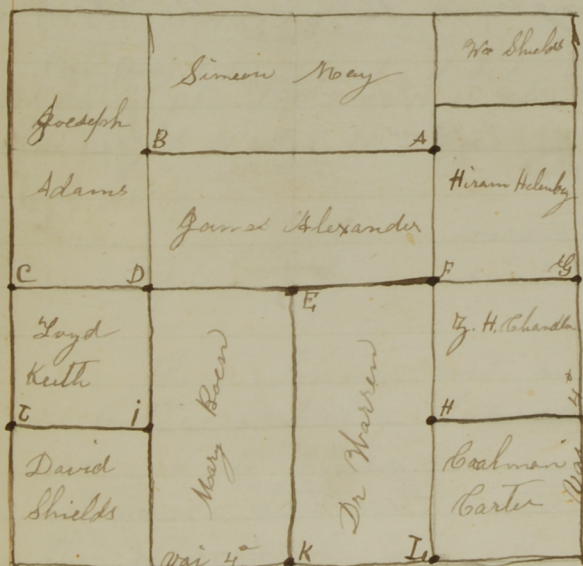 Simeon May
Wm Shields
Joeseph
Adams
B
A
Hiram
James Alexander
C
D
E
F
G
Loyd
Keith
Z. H. Chandler
Mary Boen
Dr Warren
H
i
David
Shields
Coalman
Carter
Var 4°
K
I